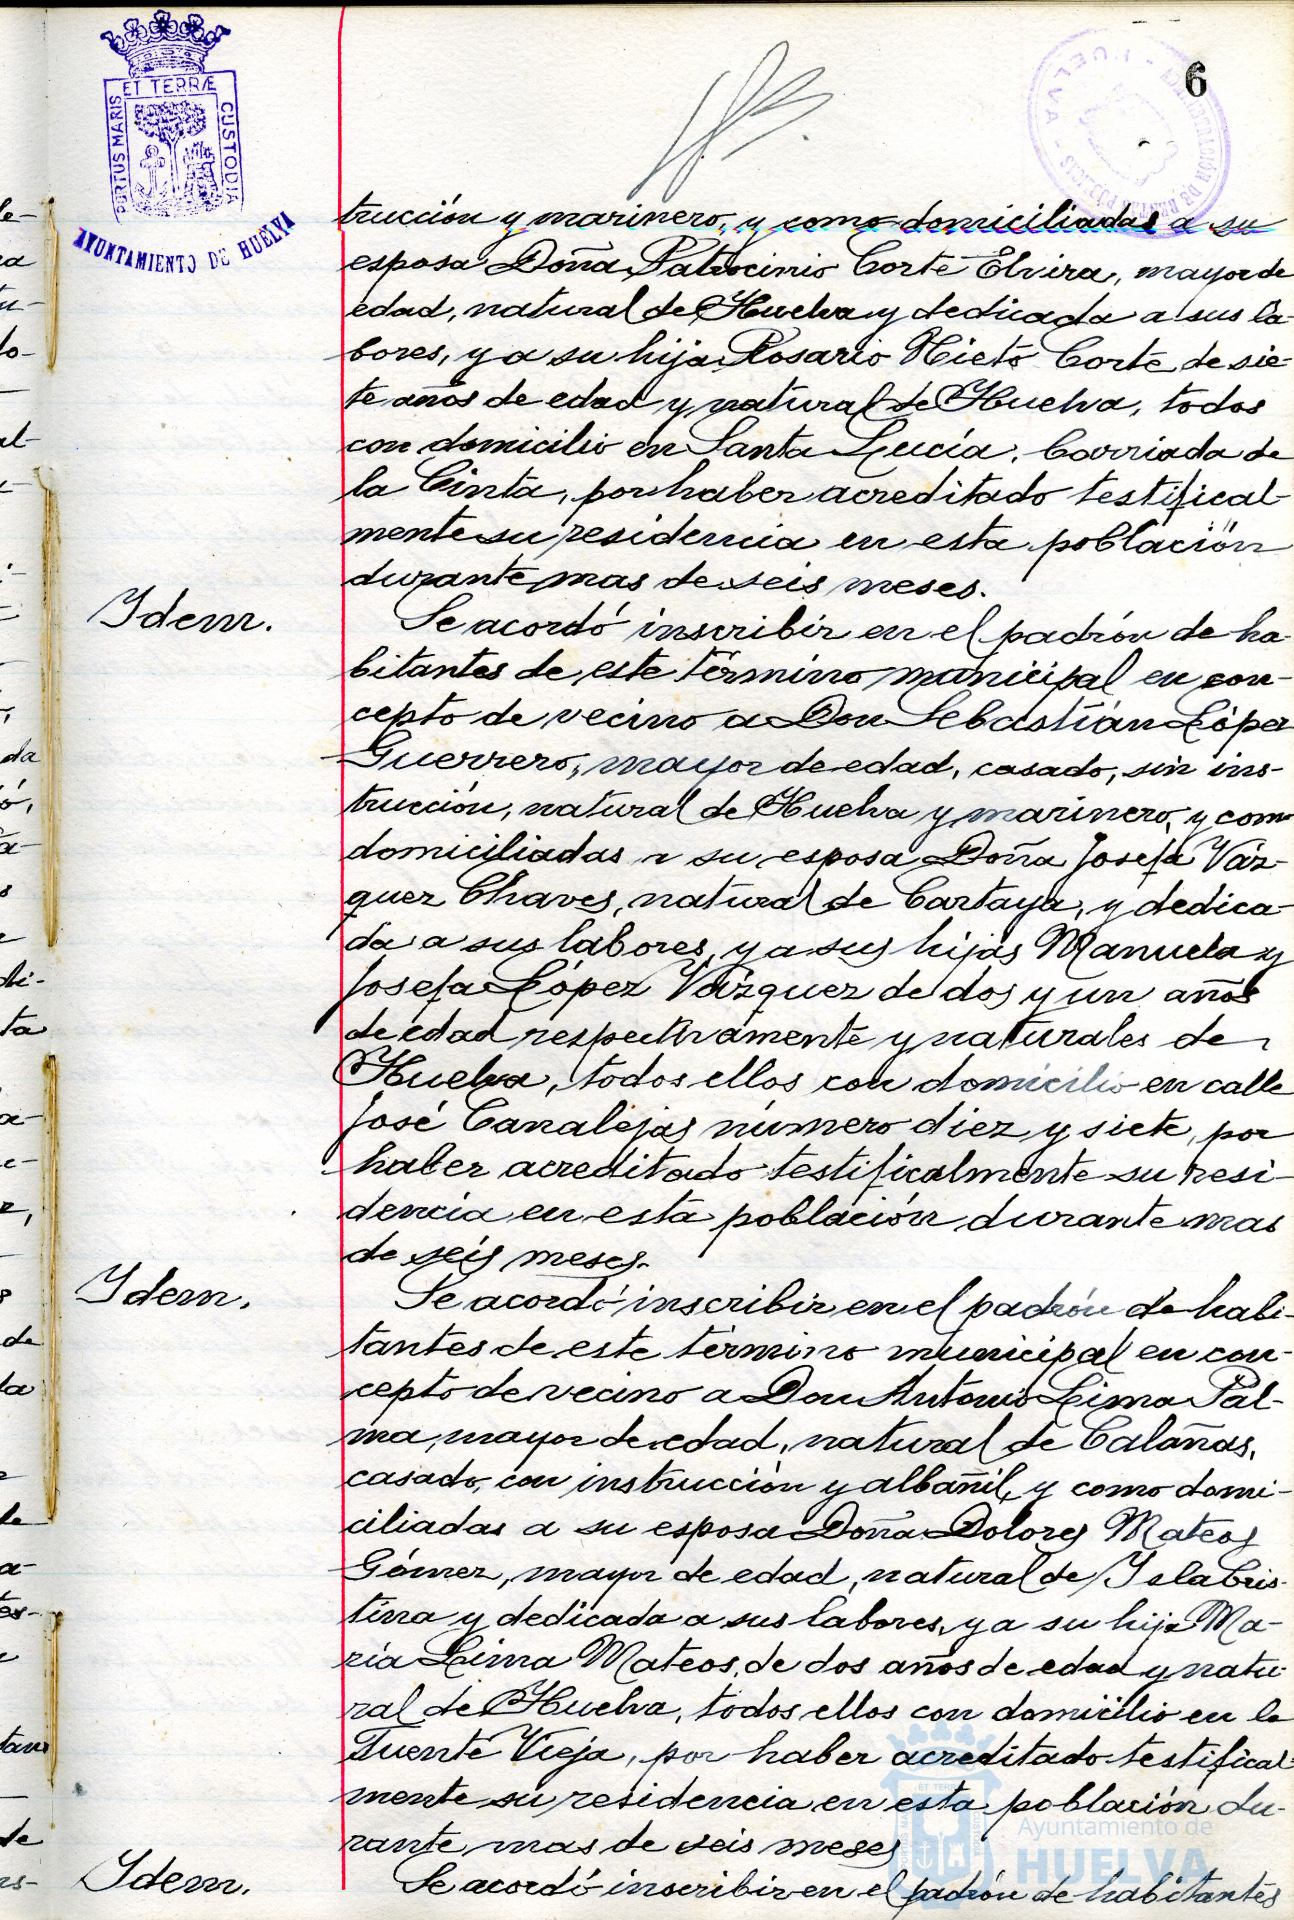 6
ET TERRÆ
PORTUS MARIS
CUSTODIA
AYUNTAMIENTO DE HUELVA
HUELVA
trucción y marinero, y como domiciliadas a su
esposa Doña Patrocinio Corte Elvira, mayor de
edad, natural de Huelva y dedicada a sus la-
bores, y a su hija Rosario Nieto Corte de sie-
te años de edad y natural de Huelva, todos
con domicilio en Santa Lucía, barriada de
la Cinta, por haber acreditado testifical-
mente su residencia en esta población
durante mas de seis meses.
Idem.
Se acordó inscribir en el padrón de ha-
bitantes de este término municipal en con-
cepto de vecino a Don Sebastián López
Guerrero, mayor de edad, casado, sin ins-
trucción, natural de Huelva y marinero, y como
domiciliadas a su esposa Doña Josefa Váz-
quez Chaves, natural de Cartaya, y dedica-
da a sus labores, y a sus hijas Manuela y
Josefa López Vázquez de dos y un años
de edad respectivamente y naturales de
Huelva, todos ellos con domicilio en calle
José Canalejas número diez y siete, por
haber acreditado testificalmente su resi-
dencia en esta población durante mas
de seis meses.
Idem.
Se acordó inscribir en el padrón de habi-
tantes de este término municipal en con-
cepto de vecino a Don Antonio Lima Pal-
ma, mayor de edad, natural de Calañas,
casado, con instrucción y albañil, y como domi-
ciliadas a su esposa Doña Dolores Mateos
Gómez, mayor de edad, natural de Isla Cris-
tina y dedicada a sus labores, y a su hija Ma-
ría Lima Mateos, de dos años de edad y natu-
ral de Huelva, todos ellos con domicilio en la
Fuente Vieja, por haber acreditado testifical-
mente su residencia en esta población du-
rante mas de seis meses
Idem.
Se acordó inscribir en el padrón de habitantes
Ayuntamiento de
HUELVA